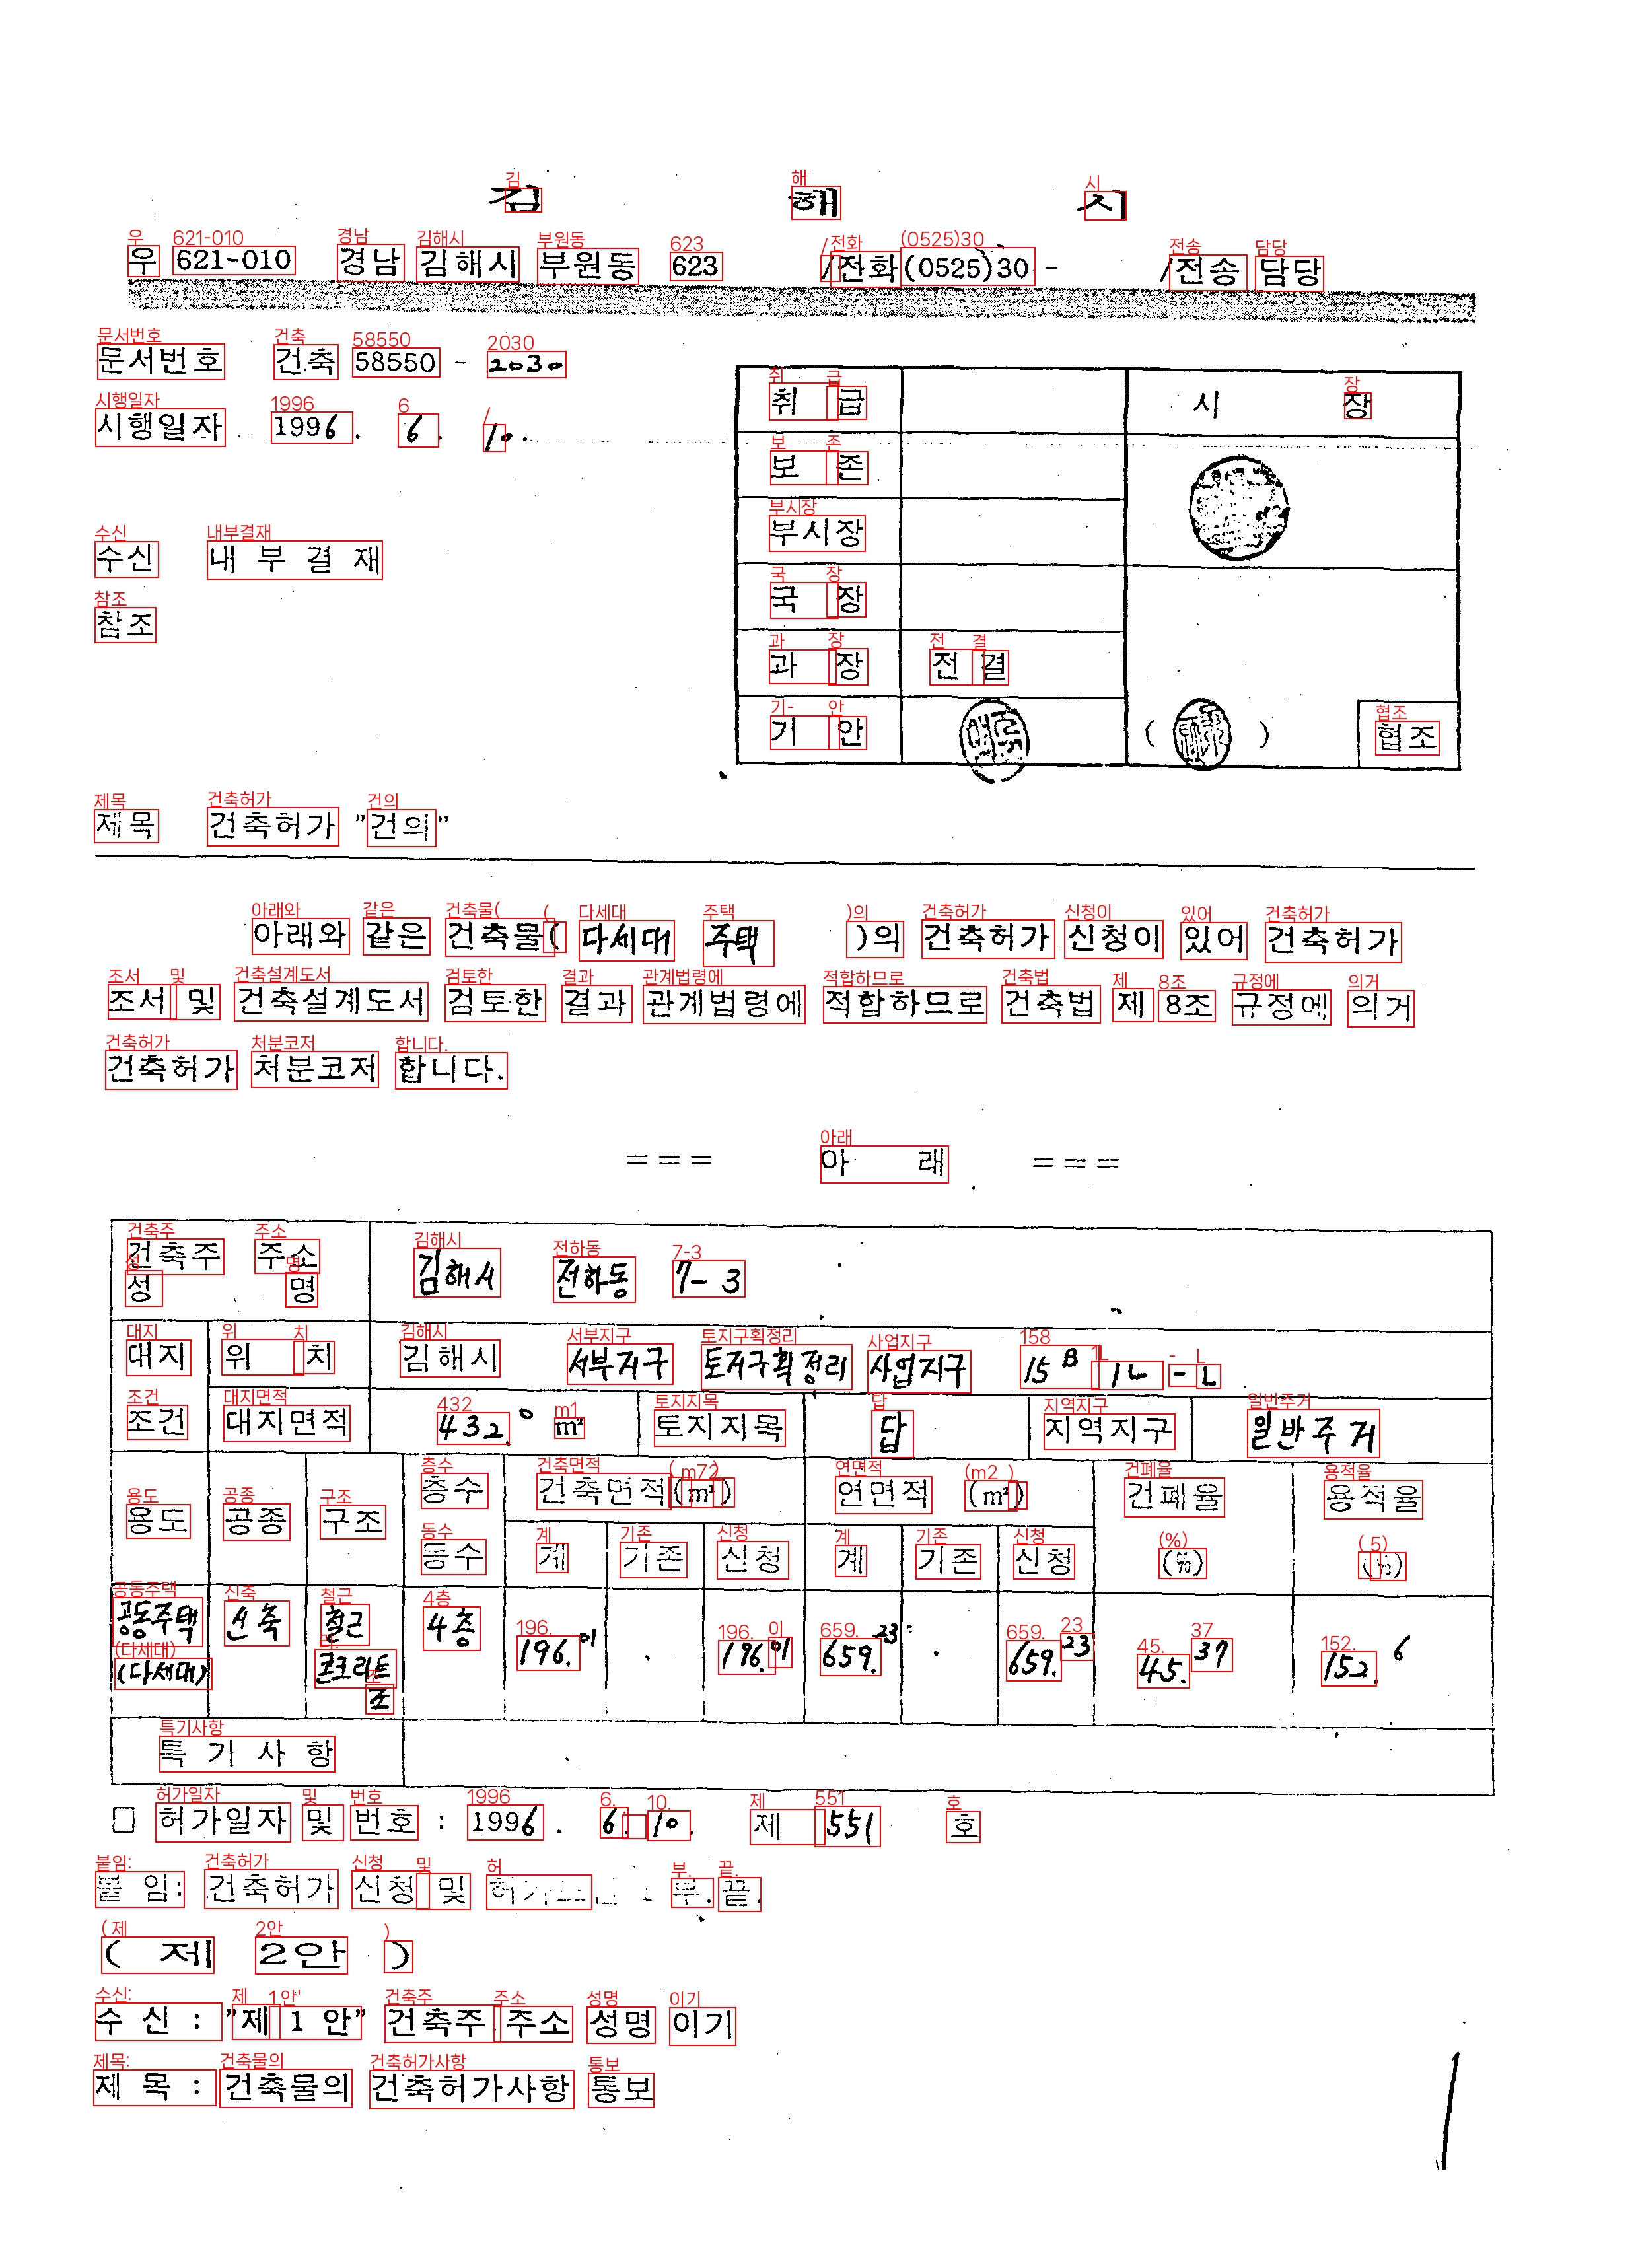 김 해 시
우 621-010 경남 김해시 부원동 623 /전화(0525)30 - /전송 담당
문서번호 건축 58550 - 2030
시행일자 1996. 6. 10.
취 급 시 장
보 존
부시장
수신 내 부 결 재
국 장
참조
과 장 전 결
기 안 ( ) 협조
제목 건축허가 "건의"
아래와 같은 건축물( 다세대 주택 )의 건축허가 신청이 있어 건축허가
조서 및 건축설계도서 검토한 결과 관계법령에 적합하므로 건축법 제 8조 규정에 의거
건축허가 처분코저 합니다.
=== 아 래 ===
건축주 주소 김해시 전하동 7-3
성 명
대지 위 치 김해시 서부지구 토지구획정리 사업지구 15B 1L-L
조건 대지면적 432.0 m² 토지지목 답 지역지구 일반주거
용도 공종 구조 층수 건축면적(m²) 연면적 (m²) 건폐율 용적율
동수 계 기존 신청 계 기존 신청 (%) (%)
공동주택 신축 철근 4층 196.01 . 196.01 659.23 . 659.23 45.37 152.6
(다세대) 콘크리트
조
특 기 사 항
□ 허가일자 및 번호 : 1996. 6. 10. 제 551 호
붙 임: 건축허가 신청 및 부. 끝.
( 제 2안 )
수 신 : "제 1 안" 건축주 주소 성명 이기
제 목 : 건축물의 건축허가사항 통보